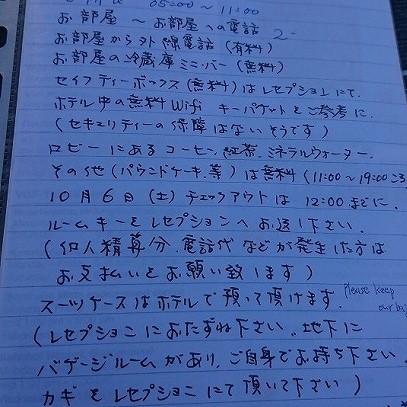 05:00 ～ 11:00
お部屋 ～ お部屋への電話 2
お部屋から外線電話 (有料)
お部屋の冷蔵庫 ミニバー (無料)
セイフティーボックス (無料) はレセプションにて.
ホテル中の無料Wifi キーパケットをご参考に.
(セキュリティーの保障はないそうです)
ロビーにあるコーヒー. 紅茶. ミネラルウォーター.
その他 (パウンドケーキ等) は無料 (11:00～19:00ころ
10月6日 (土) チェックアウトは 12:00までに.
ルームキーをレセプションへお返し下さい.
(個人精算分. 電話代などが発生した方は
お支払いをお願い致します)
スーツケースはホテルで預って頂けます. Please keep
our ba
(レセプションにおたずね下さい. 地下に
バゲージルームがあり. ご自身でお持ち下さい.
カギをレセプションにて頂いて下さい)